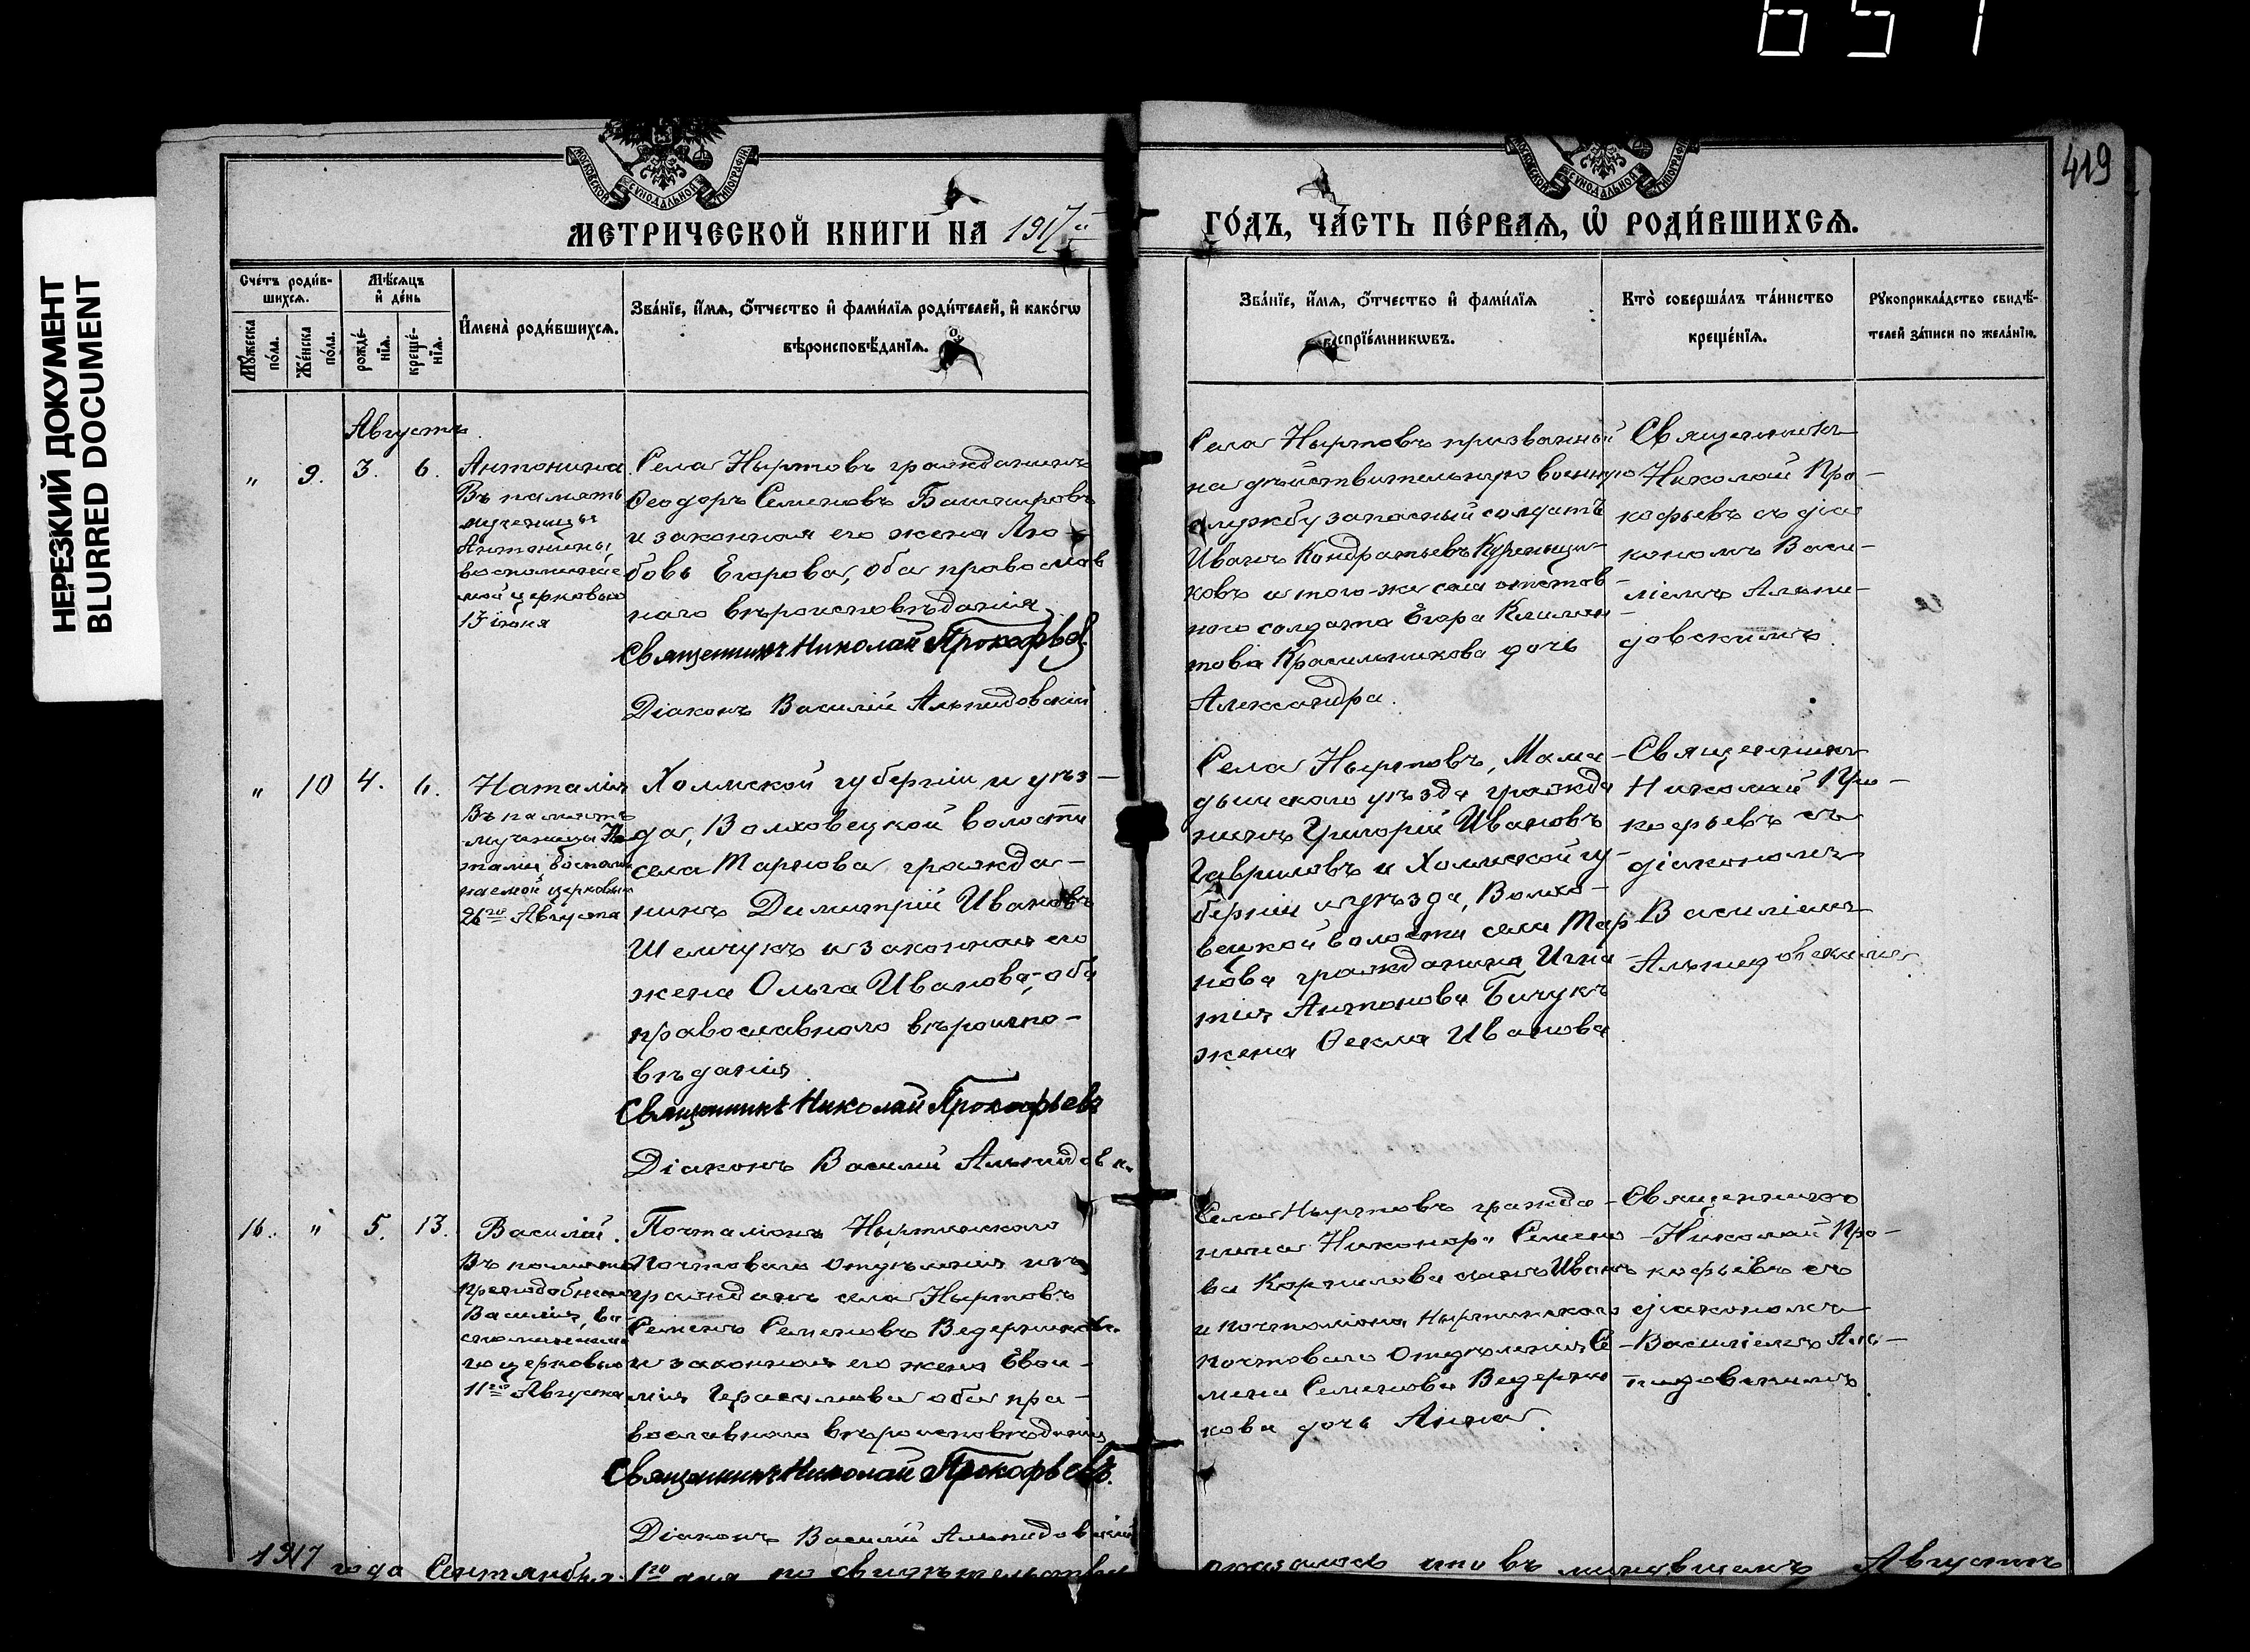 651
НЕРЕЗКИЙ ДОКУМЕНТ
BLURRED DOCUMENT
419
МОСКОВСКОЙ СѴНОДАЛЬНОЙ ТИПОГРАФІИ
МОСКОВСКОЙ СѴНОДАЛЬНОЙ ТИПОГРАФІИ
МЕТРИЧЕСКОЙ КНИГИ НА 1917й
ГОДЪ, ЧАСТЬ ПЕРВАѦ, Ѡ РОДИВШИХСѦ.
Счетъ родив-
шихсѧ.
Мѣсѧцъ
и день
Мужеска
пола.
Женска
пола.
рожде-
нїѧ.
креще-
нїѧ.
Имена родившихсѧ.
Званїе, имѧ, отчество и фамилїѧ родителей, и какогѡ
вѣроисповѣданїѧ.
Званїе, имѧ, отчество и фамилїѧ
воспрїемникѡвъ.
Кто совершалъ таинство
крещенїѧ.
Рукоприкладство свидѣ-
телей записи по желанїю.
Августъ
" 9. 3. 6.
Антонина
Въ память
мученицы
Антонины,
воспоминае
мой церковью
13 іюня
Села Ныртовъ гражданинъ
Ѳеодоръ Семеновъ Башкировъ
и законная его жена Лю-
бовь Егорова, оба православ
наго вѣроисповѣданія
Священникъ Николай Прокофьевъ
Діаконъ Василій Альпидовскій
Села Ныртовъ призванный
на дѣйствительную военную
службу запасный солдатъ
Иванъ Кондратьевъ Куренщи-
ковъ и того-же села отстав-
ного солдата Егора Климен-
това Красильникова дочь
Александра.
Священникъ
Николай Про-
кофьевъ съ діа
кономъ Васи-
ліемъ Альпи-
довскимъ.
" 10 4. 6.
Наталія
Въ память
мученицы На
таліи, воспоми
наемой церковью
26го Августа
Холмской губерніи и уѣз-
да, Волковецкой волости
села Тарнова гражда-
нинъ Димитрій Ивановъ
Шемчукъ и законная его
жена Ольга Иванова, оба
православнаго вѣроиспо-
вѣданія.
Священникъ Николай Прокофьевъ
Діаконъ Василій Альпидовск.
Села Ныртовъ, Мама-
дышскаго уѣзда гражда
нинъ Григорій Ивановъ
Гавриловъ и Холмской гу-
берніи и уѣзда, Волко-
вецкой волости села Тар
нова гражданина Игна-
тія Антонова Бичукъ
жена Ѳекла Иванова.
Священникъ
Николай Про-
кофьевъ съ
діакономъ
Василіемъ
Альпидовскимъ
16. " 5. 13.
Василій.
Въ память
преподобнаго
Василія, во
споминаема
го церковью
11го Августа
Почталіонъ Ныртинскаго
почтоваго отдѣленія изъ
гражданъ села Ныртовъ
Семенъ Семеновъ Ведерниковъ.
и законная его жена Евѳи-
мія Герасимова оба пра-
вославнаго вѣроисповѣданія
Священникъ Николай Прокофьевъ.
Діаконъ Василій Альпидовскій
Села Ныртовъ гражда-
нина Никонора Семено
ва Корнилова сынъ Иванъ
и почталіона Ныртинскаго
почтоваго Отдѣленія Се-
мена Семенова Ведерни
кова дочь Анна.
Священникъ
Николай Про-
кофьевъ съ
діакономъ
Василіемъ Аль-
пидовскимъ.
1917 года Сентября 1го дня по свидѣтельству
оказалось что въ минувшемъ Августѣ